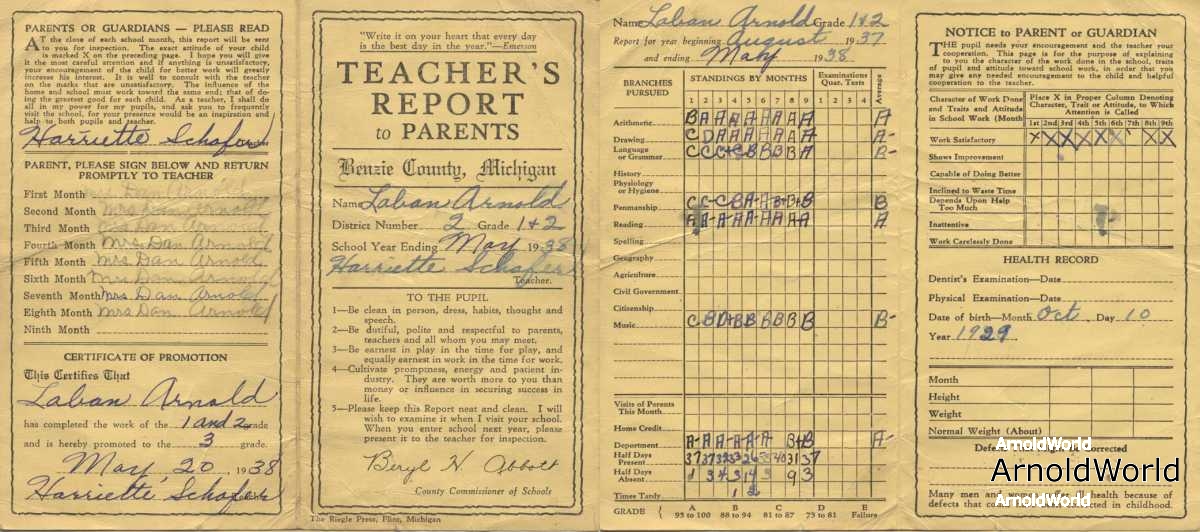 PARENTS OR GUARDIANS — PLEASE READ
AT the close of each school month, this report will be sent
to you for inspection. The exact attitude of your child
is marked X on the preceding page. I hope you will give
it the most careful attention and if anything is unsatisfactory,
your encouragement of the child for better work will greatly
increase his interest. It is well to consult with the teacher
on the marks that are unsatisfactory. The influence of the
home and school must work toward the same end; that of do-
ing the greatest good for each child. As a teacher, I shall do
all in my power for my pupils, and ask you to frequently
visit the school, for your presence would be an inspiration and
help to both pupils and teacher.
Harriette Schafer
PARENT, PLEASE SIGN BELOW AND RETURN
PROMPTLY TO TEACHER
First Month Mrs Dan Arnold
Second Month Mrs Dan Arnold
Third Month Mrs Dan Arnold
Fourth Month Mrs Dan Arnold
Fifth Month Mrs Dan Arnold
Sixth Month Mrs Dan Arnold
Seventh Month Mrs Dan Arnold
Eighth Month Mrs Dan Arnold
Ninth Month
CERTIFICATE OF PROMOTION
This Certifies That
Laban Arnold
has completed the work of the 1 and 2 grade
and is hereby promoted to the 3 grade.
May 20, 1938
Harriette Schafer
"Write it on your heart that every day
is the best day in the year."—Emerson
TEACHER'S
REPORT
to PARENTS
Benzie County, Michigan
Name Laban Arnold
District Number 2 Grade 1 & 2
School Year Ending May 1938
Harriette Schafer
Teacher.
TO THE PUPIL
1—Be clean in person, dress, habits, thought and
speech.
2—Be dutiful, polite and respectful to parents,
teachers and all whom you may meet.
3—Be earnest in play in the time for play, and
equally earnest in work in the time for work.
4—Cultivate promptness, energy and patient in-
dustry. They are worth more to you than
money or influence in securing success in
life.
5—Please keep this Report neat and clean. I will
wish to examine it when I visit your school.
When you enter school next year, please
present it to the teacher for inspection.
Beryl H. Abbott
County Commissioner of Schools
The Riegle Press, Flint, Michigan
Name Laban Arnold Grade 1 & 2
Report for year beginning August 1937
and ending May 1938
BRANCHES PURSUED
STANDINGS BY MONTHS
Examinations Quar. Tests
Average
1 2 3 4 5 6 7 8 9 1 2 3 4
Arithmetic B A A A A A A A A A
Drawing C D A A A A A A A A-
Language or Grammer B-
History
Physiology or Hygiene
Penmanship B
Reading A
Spelling
Geography
Agriculture
Civil Government
Citizenship
Music B-
Visits of Parents This Month
Home Credit
Department A-
Half Days Present
Half Days Absent
Times Tardy 1 2
GRADE A B C D E
95 to 100 88 to 94 81 to 87 75 to 81 Failure
NOTICE to PARENT or GUARDIAN
THE pupil needs your encouragement and the teacher your
cooperation. This page is for the purpose of explaining
to you the character of the work done in the school, traits
of pupil and attitude toward school work, in order that you
may give any needed encouragement to the child and helpful
cooperation to the teacher.
Character of Work Done
and Traits and Attitude
in School Work (Month)
Place X in Proper Column Denoting
Character, Trait or Attitude, to Which
Attention is Called
1st 2nd 3rd 4th 5th 6th 7th 8th 9th
Work Satisfactory X X X X X X X X X
Shows Improvement
Capable of Doing Better
Inclined to Waste Time
Depends Upon Help Too Much
Inattentive
Work Carelessly Done
HEALTH RECORD
Dentist's Examination—Date
Physical Examination—Date
Date of birth—Month Oct. Day 10
Year 1929
Month
Height
Weight
Normal Weight (About)
Corrected
ArnoldWorld
ArnoldWorld
ArnoldWorld
Many men and health because of
defects that could in childhood.